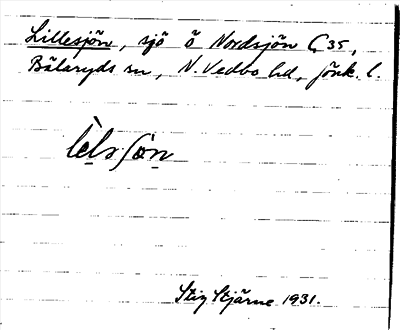 Lillesjön, sjö ö Nordsjön C 35,
Bälaryds sn, N. Vedbo hd, Jönk. l.
Stig Stjärne 1931.